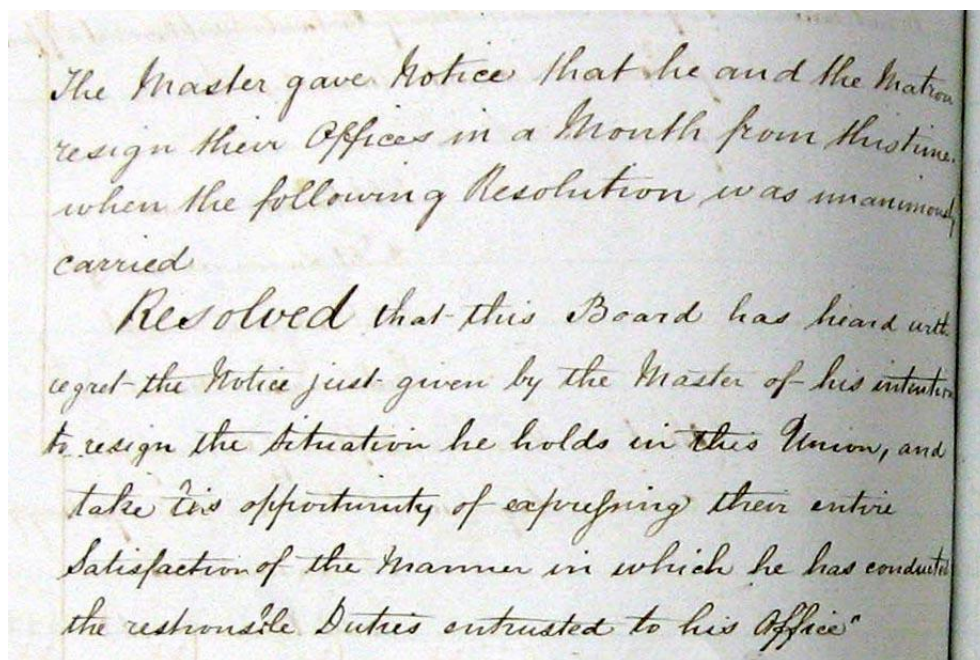 The Master gave Notice that he and the Matron
resign their Offices in a Month from this time
when the following Resolution was unanimously
carried
Resolved that this Board has heard with
regret the Notice just given by the Master of his intention
to resign the Situation he holds in this Union, and
take this opportunity of expressing their entire
Satisfaction of the Manner in which he has conducted
the responsible Duties entrusted to his Office"